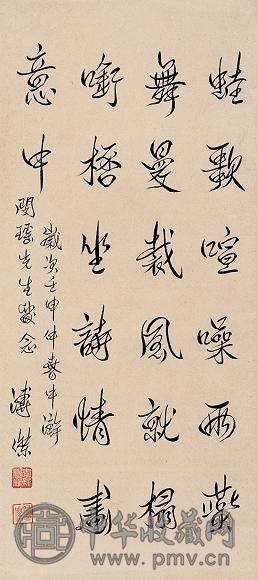 蛙歌喧噪雨燕
舞曼裁風就榻
啣桮坐詩情畫
意中
歲次壬申仲春中澣
先生念
溥傑
中华收藏网
www.pmv.cn